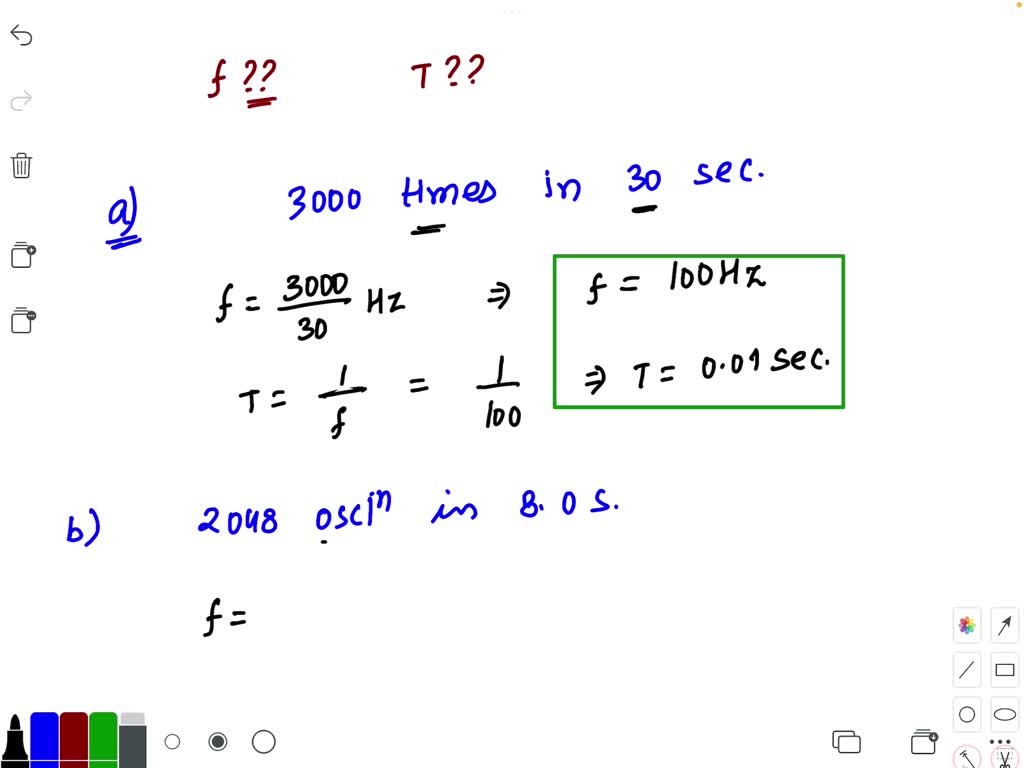 f ?? T ??
a) 3000 times in 30 sec.
f = 3000/30 Hz ⇒ f = 100Hz
T = 1/f = 1/100 ⇒ T = 0.01 sec.
b) 2048 oscⁿ in 8.0 s.
f =